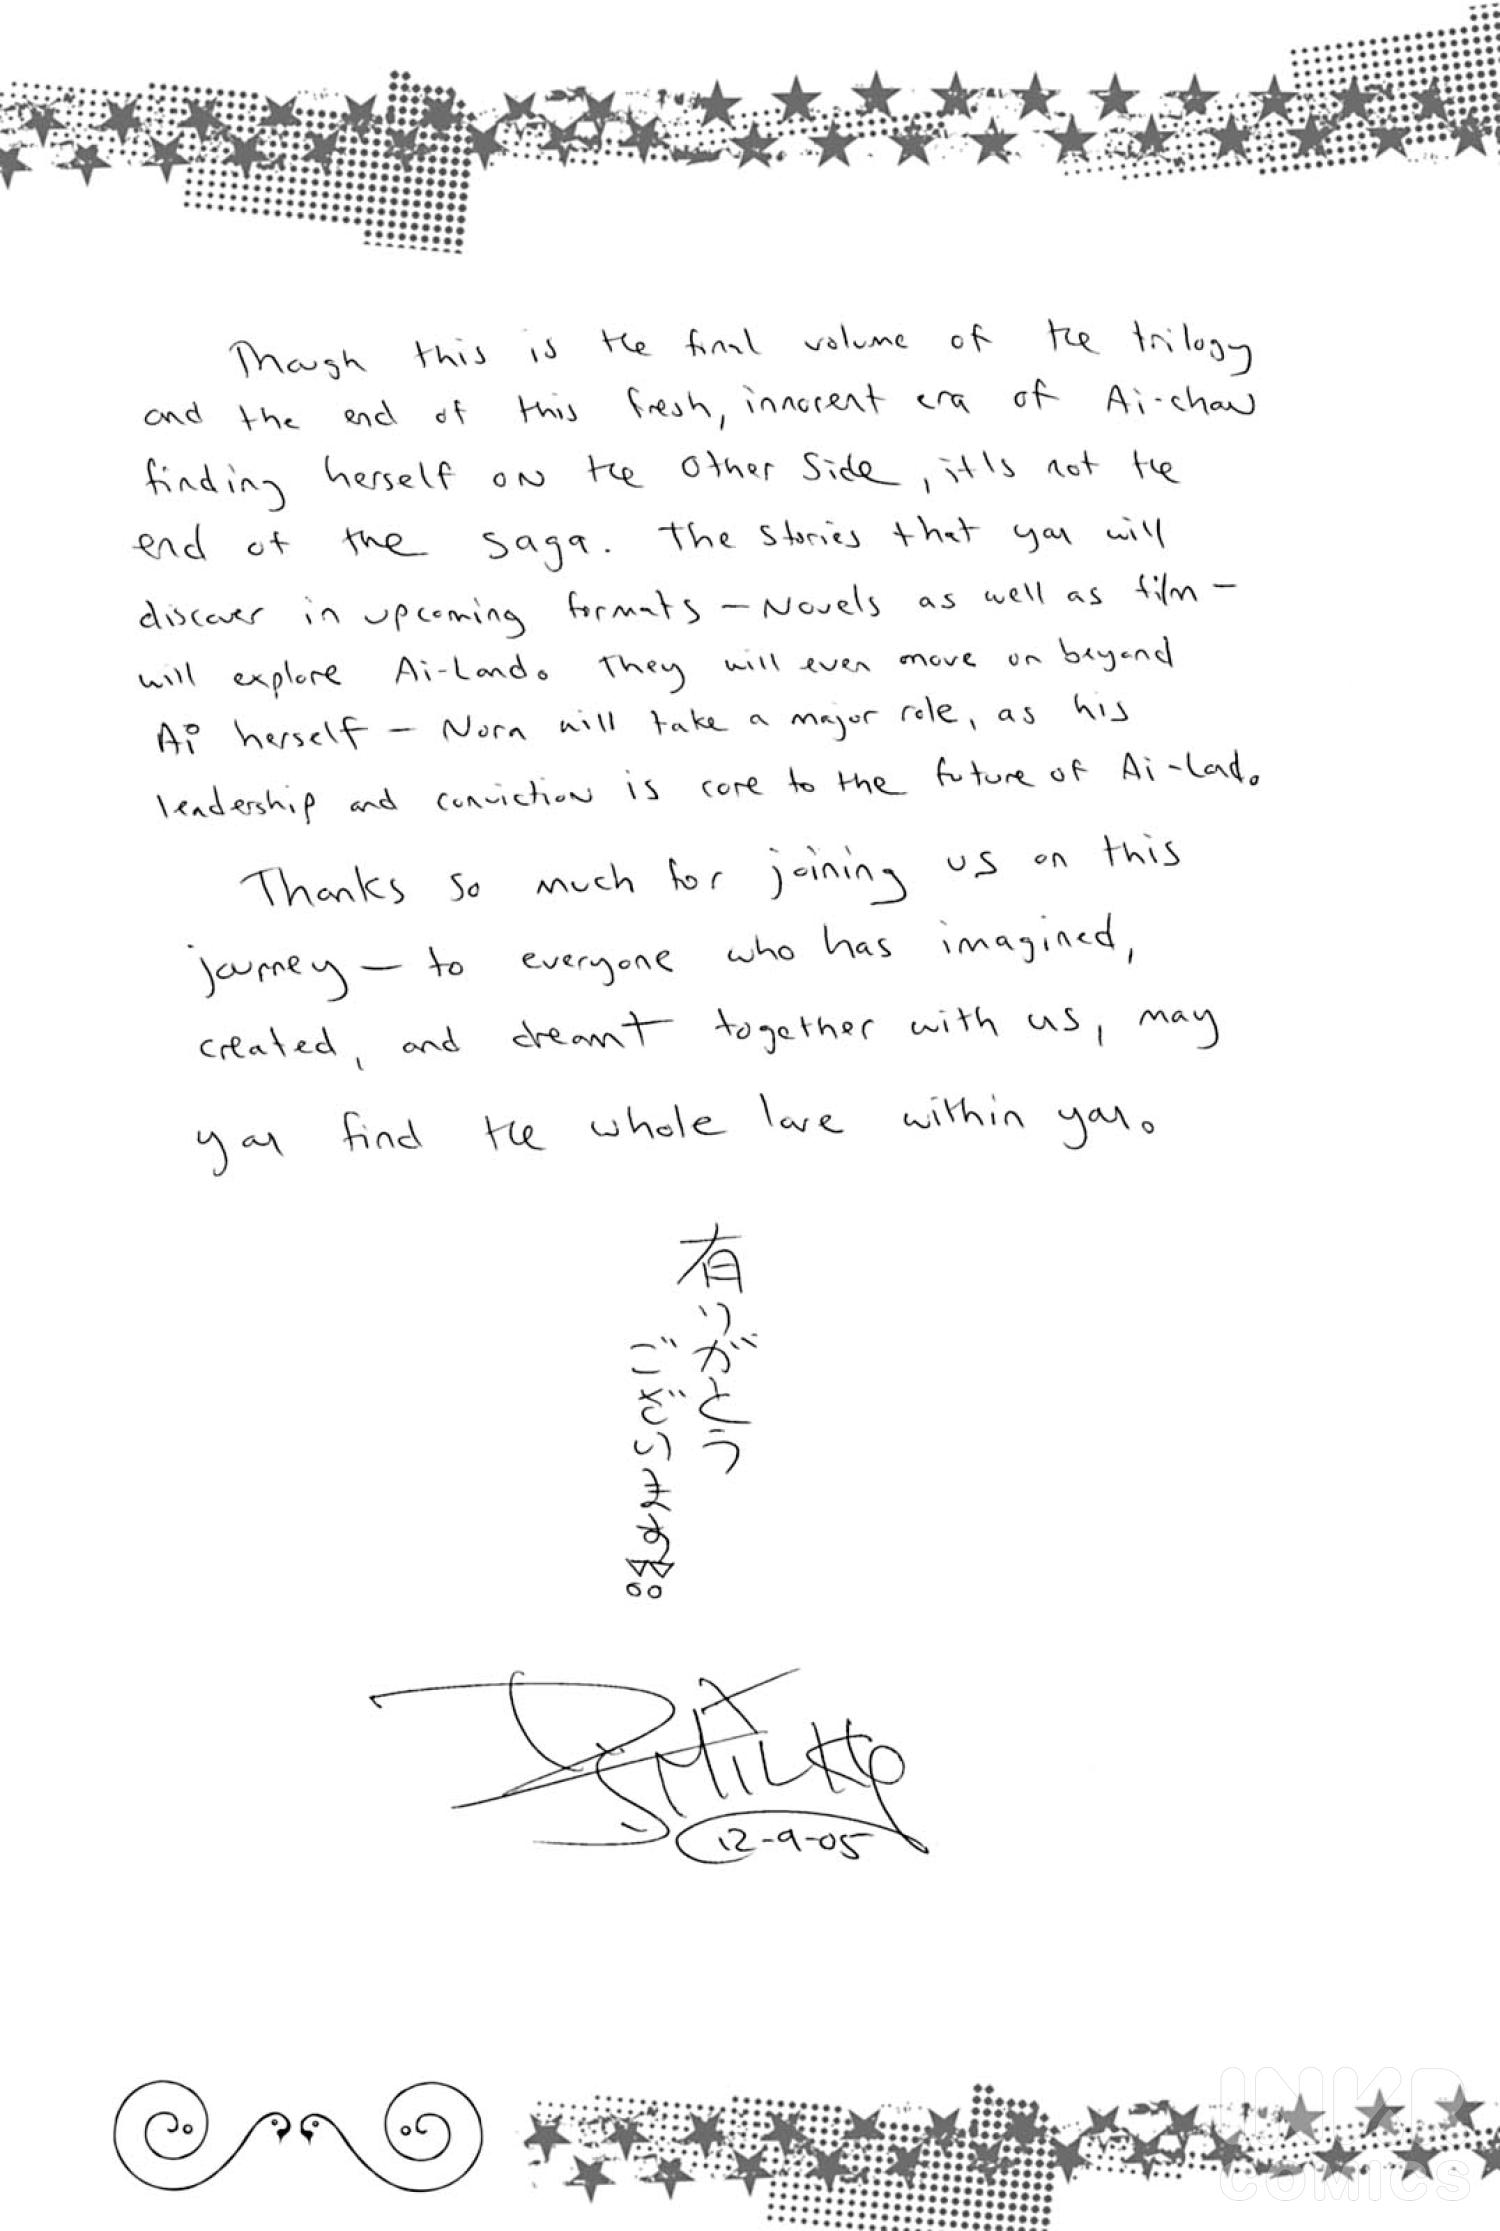 Though this is the final volume of the trilogy
and the end of this fresh, innocent era of Ai-chan
finding herself on the Other Side, it's not the
end of the saga. The stories that you will
discover in upcoming formats – Novels as well as film –
will explore Ai-Land. They will even move on beyond
Ai herself – Nora will take a major role, as his
leadership and conviction is core to the future of Ai-Land.
Thanks so much for joining us on this
journey – to everyone who has imagined,
created, and dreamt together with us, may
you find the whole love within you.
有りがとう
ございます!!
DJ MILKY
12-9-05
INKR
COMICS